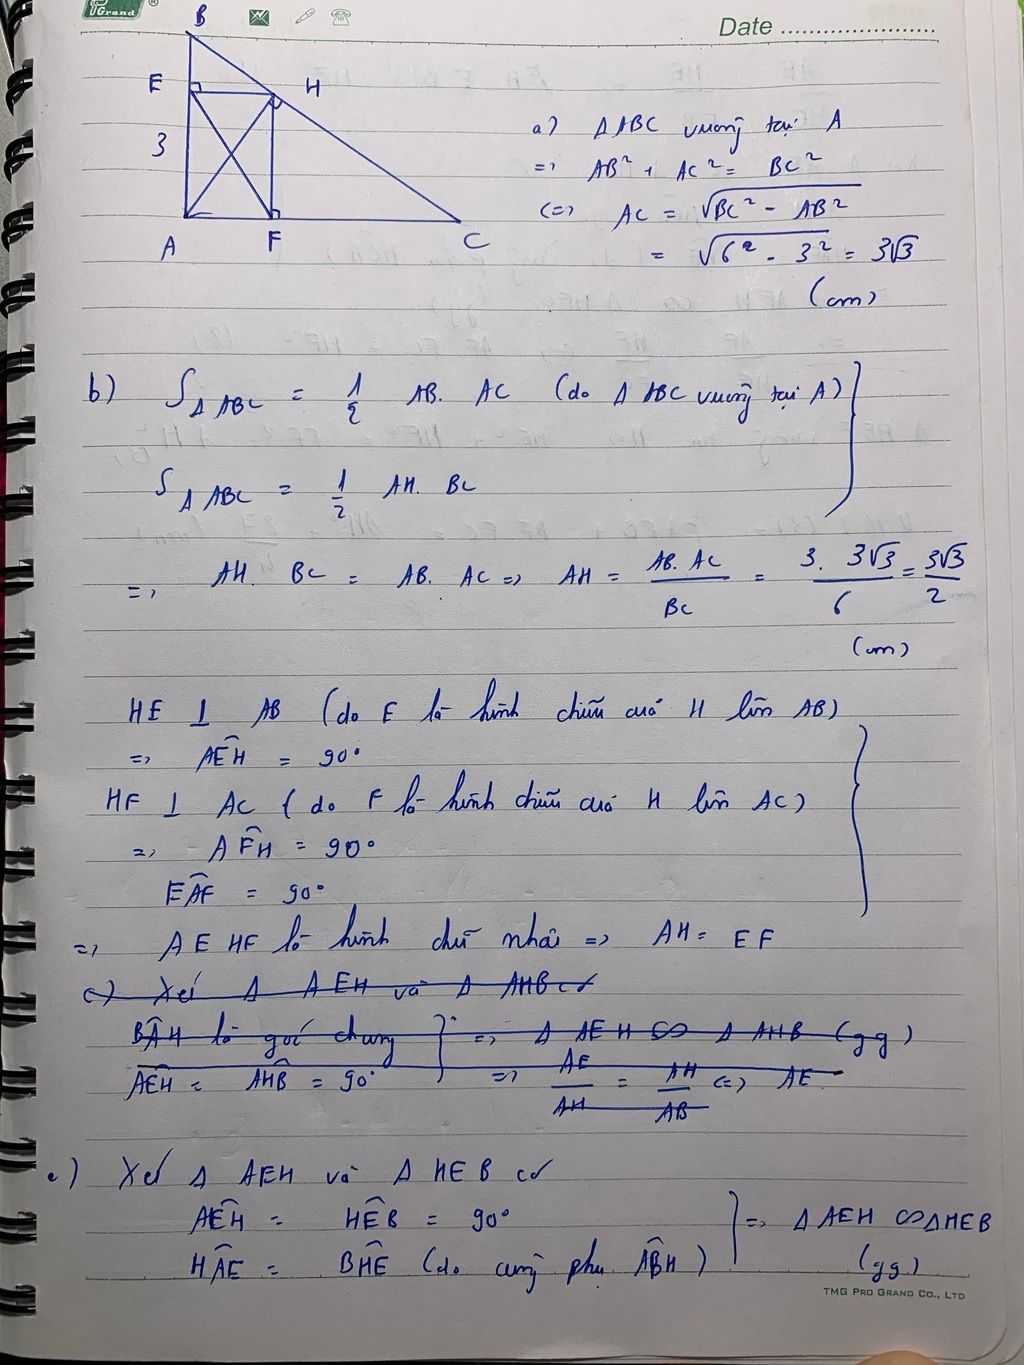 PGrand ®
Date ........................
B
E
H
3
A
F
C
a) Δ ABC vuông tại A
=> AB² + AC² = BC²
<=> AC = √(BC² - AB²)
= √(6² - 3²) = 3√3
(cm)
b) S_Δ ABC = 1/2 AB. AC (do Δ ABC vuông tại A)
S_Δ ABC = 1/2 AH. BC
=> AH. BC = AB. AC => AH = AB. AC / BC = 3. 3√3 / 6 = 3√3 / 2
(cm)
HE ⊥ AB (do E là hình chiếu của H lên AB)
=> AÊH = 90°
HF ⊥ AC (do F là hình chiếu của H lên AC)
=> AF̂H = 90°
EÂF = 90°
=> AEHF là hình chữ nhật => AH = EF
c) Xét Δ AEH và Δ AHB có
BÂH là góc chung } => Δ AEH ∽ Δ AHB (gg)
AÊH = AĤB = 90° => AE / AH = AH / AB <=> AE
c) Xét Δ AEH và Δ HEB có
AÊH = HÊB = 90° } => Δ AEH ∽ Δ HEB
HÂE = BĤE (do cùng phụ AB̂H) (gg)
TMG PRO GRAND CO., LTD